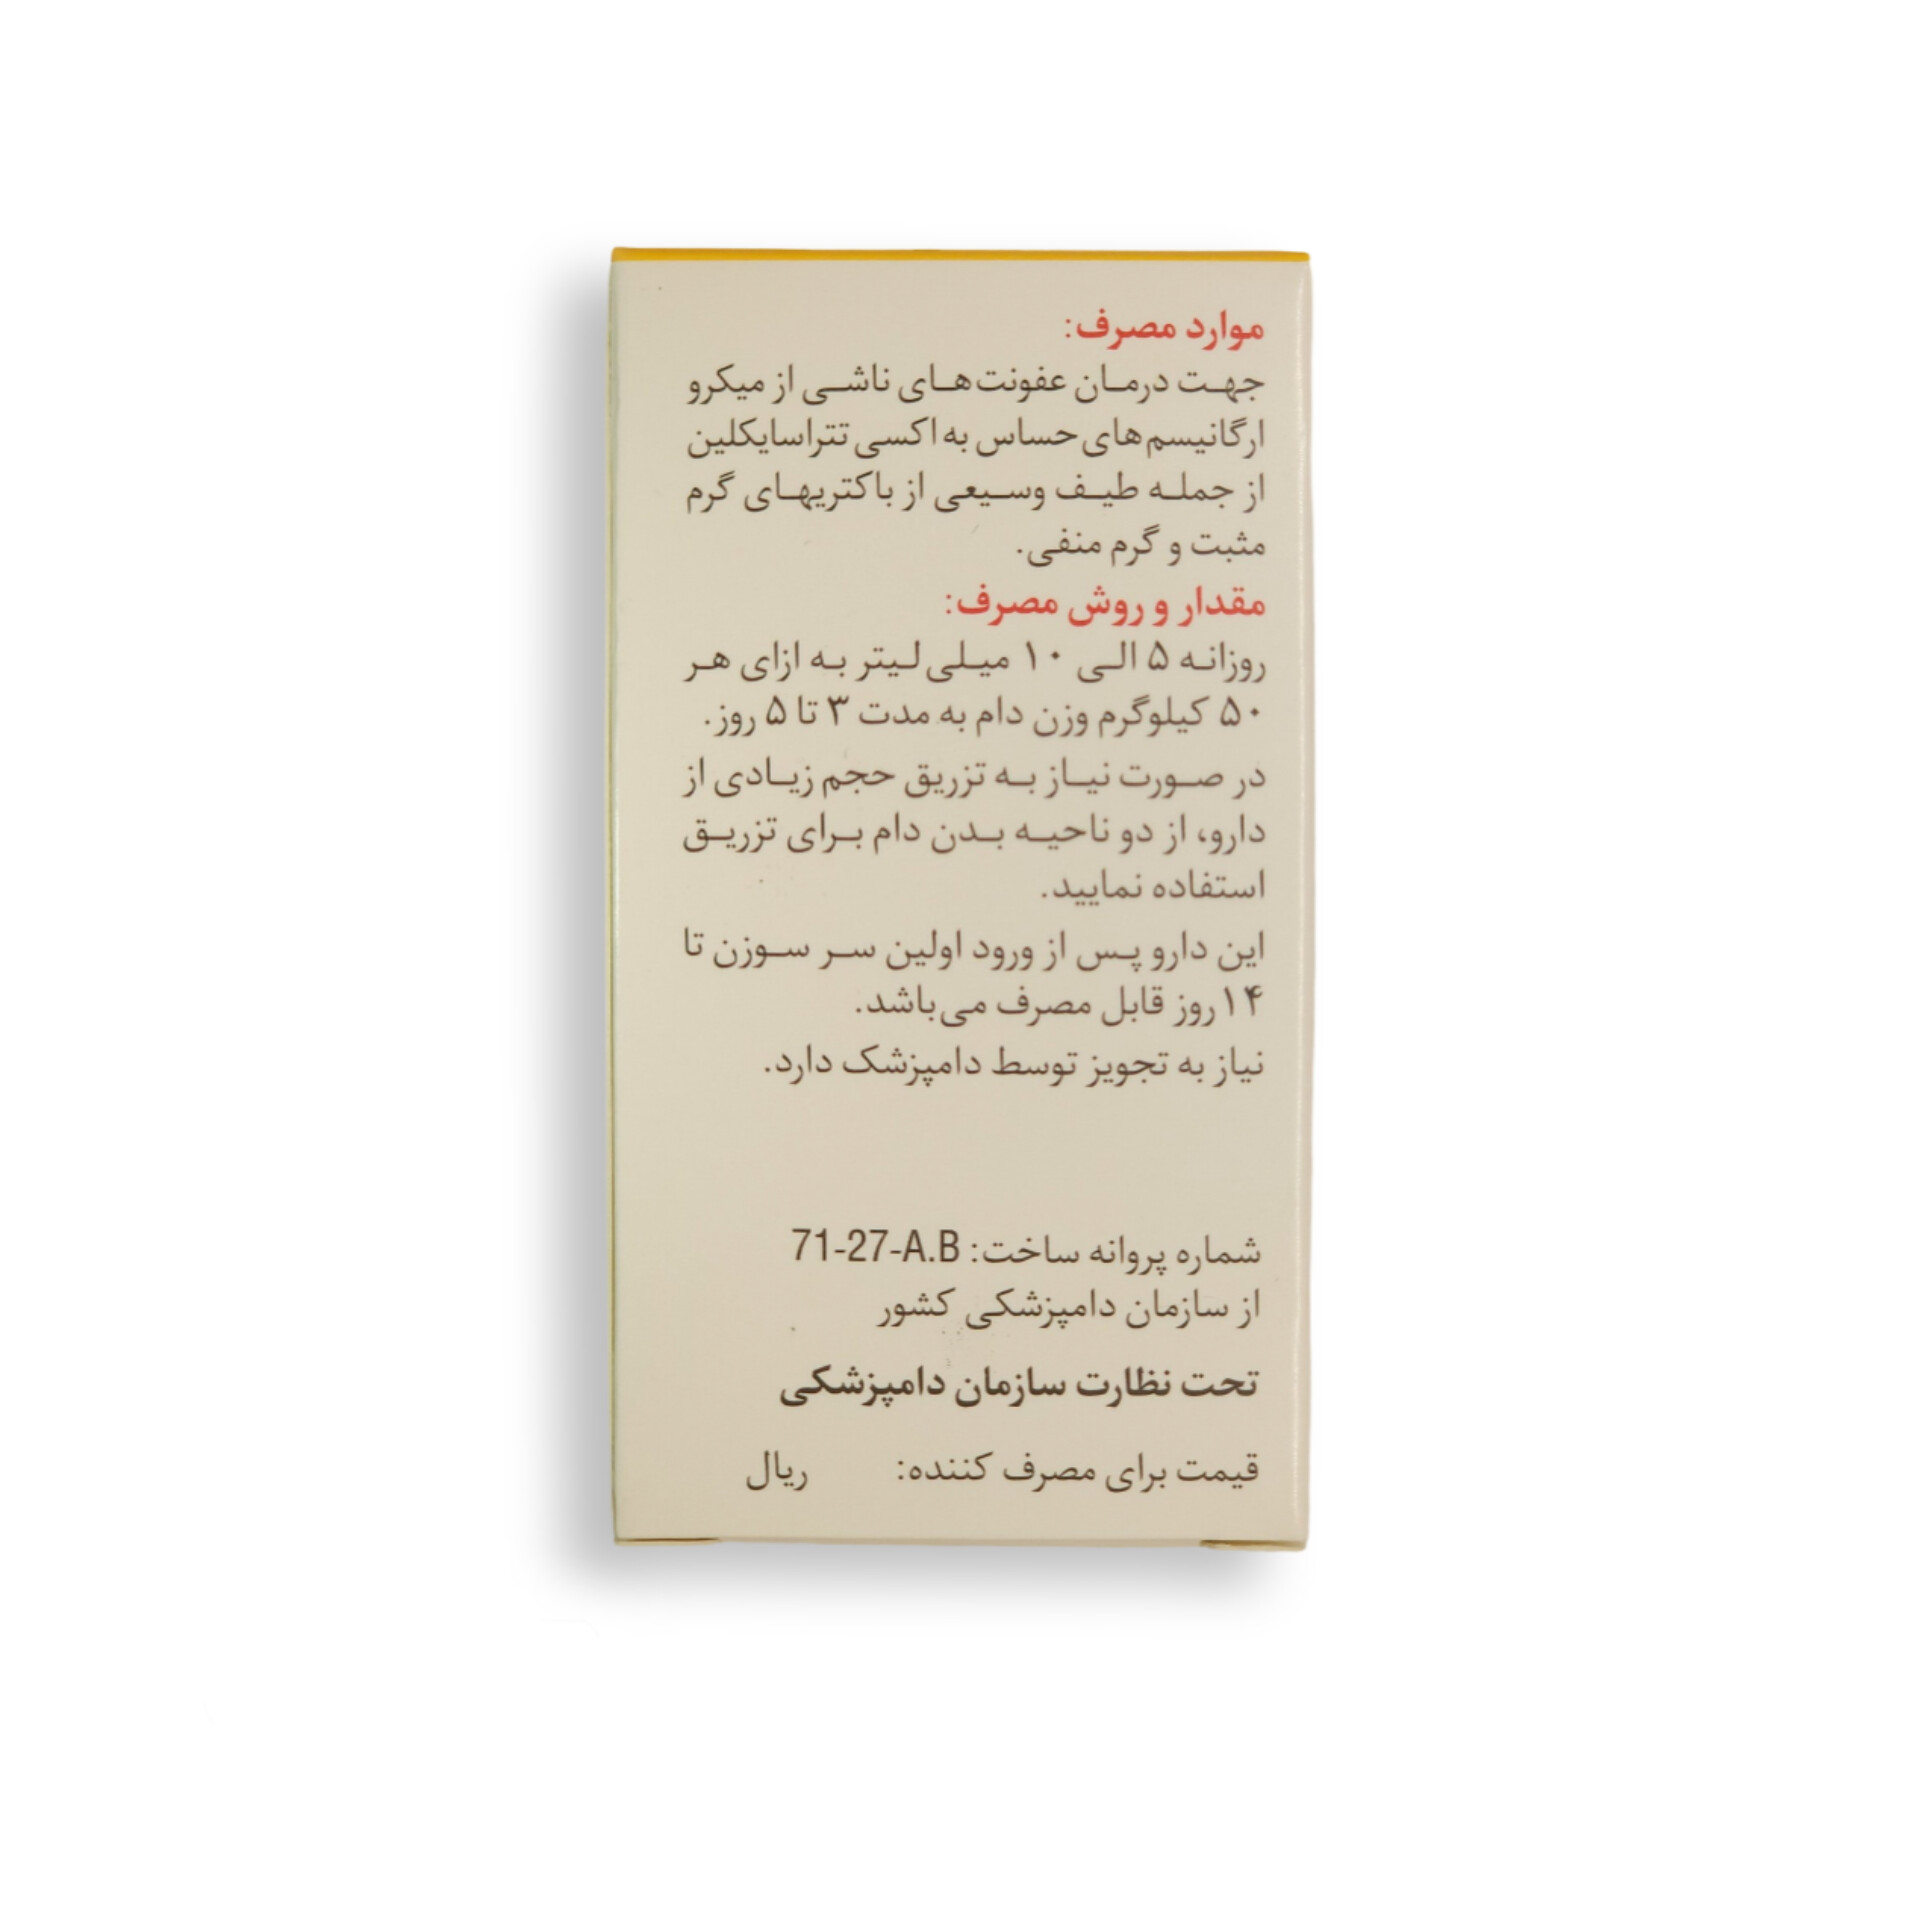 موارد مصرف:
جهت درمان عفونت‌های ناشی از میکرو
ارگانیسم‌های حساس به اکسی تتراسایکلین
از جمله طیف وسیعی از باکتریهای گرم
مثبت و گرم منفی.
مقدار و روش مصرف:
روزانه ۵ الی ۱۰ میلی‌لیتر به ازای هر
۵۰ کیلوگرم وزن دام به مدت ۳ تا ۵ روز.
در صورت نیاز به تزریق حجم زیادی از
دارو، از دو ناحیه بدن دام برای تزریق
استفاده نمایید.
این دارو پس از ورود اولین سر سوزن تا
۱۴ روز قابل مصرف می‌باشد.
نیاز به تجویز توسط دامپزشک دارد.
شماره پروانه ساخت: 71-27-A.B
از سازمان دامپزشکی کشور
تحت نظارت سازمان دامپزشکی
قیمت برای مصرف کننده: ریال